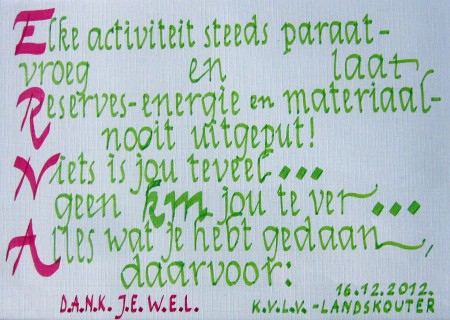 Elke activiteit steeds paraat-
vroeg en laat
Reserves-energie en materiaal-
nooit uitgeput!
Niets is jou teveel...
geen km jou te ver...
Alles wat je hebt gedaan,
daarvoor:
D.A.N.K. J.E. W.E.L.
16.12.2012.
K.V.L.V.-LANDSKOUTER